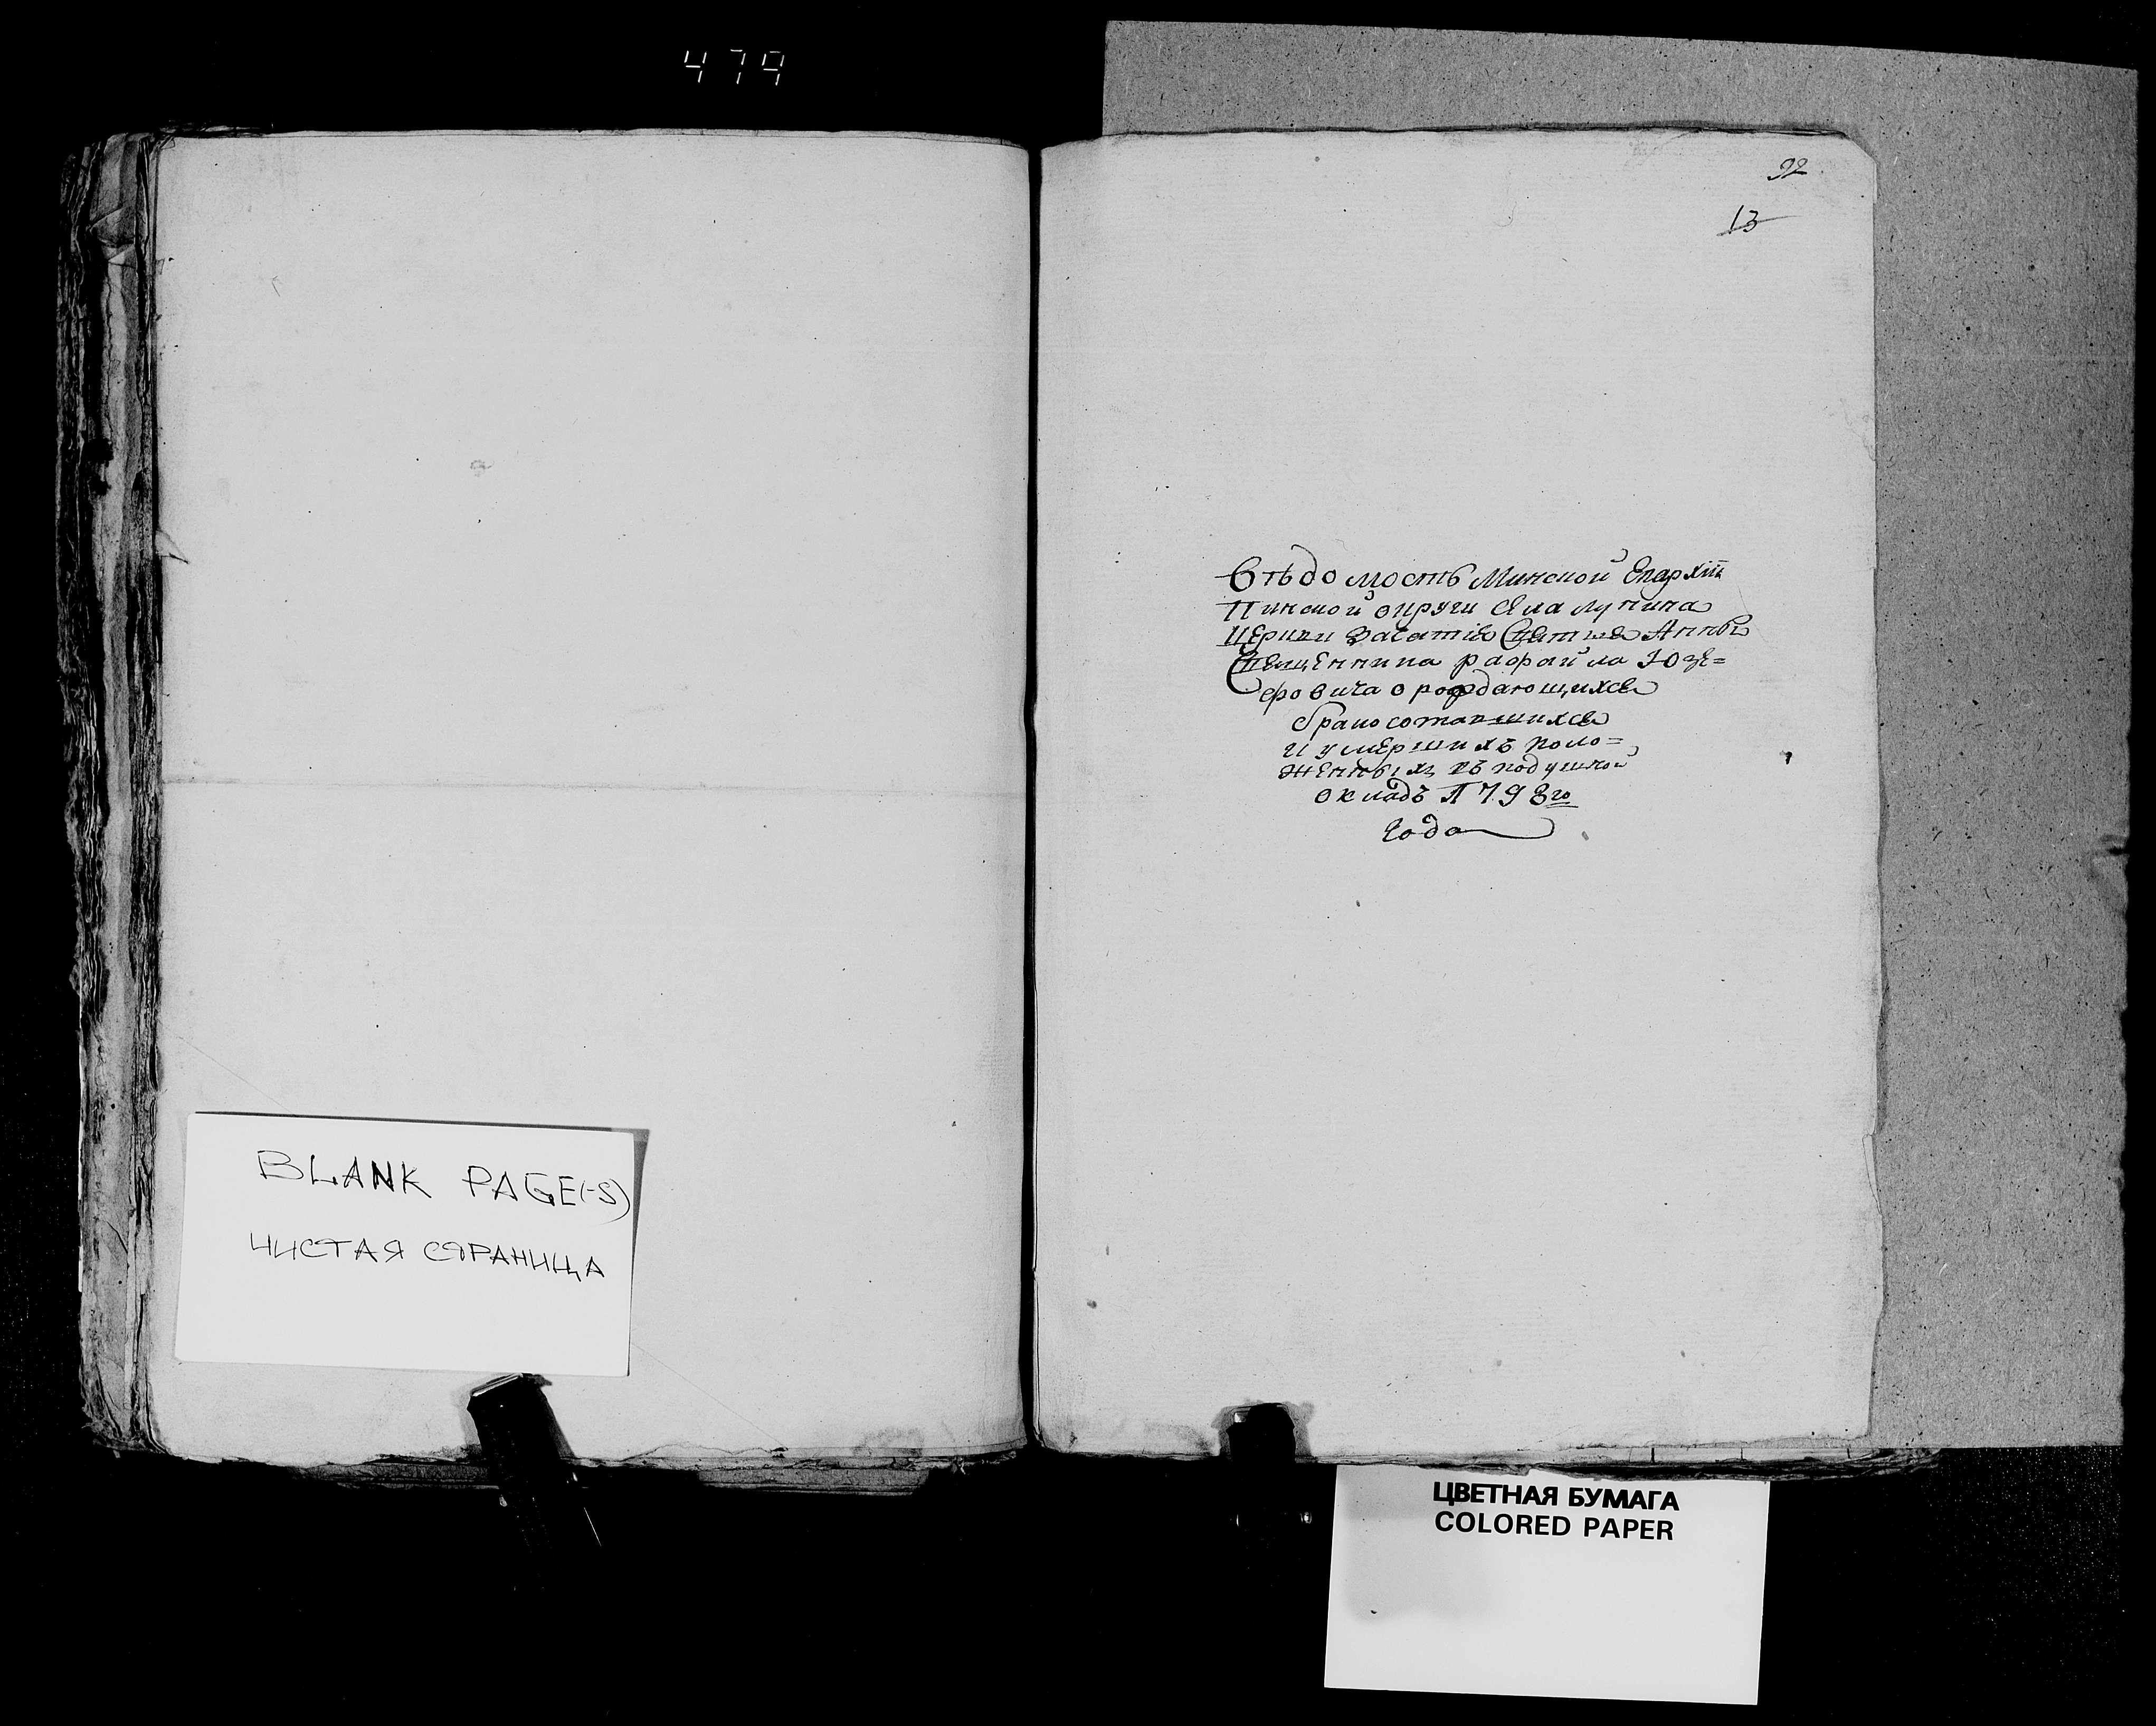 479
92
13
Вѣдомость Минской Епархіи
Пинской округи села лунина
Церкви Зачатія Святыя Анны
Священника рафаила Юзе=
фовича о рождающихся
бракосотавшихся
и умершихъ поло=
женныхъ въ подушной
окладъ 1798го
Года
BLANK PAGE(-S)
ЧИСТАЯ СТРАНИЦА
ЦВЕТНАЯ БУМАГА
COLORED PAPER